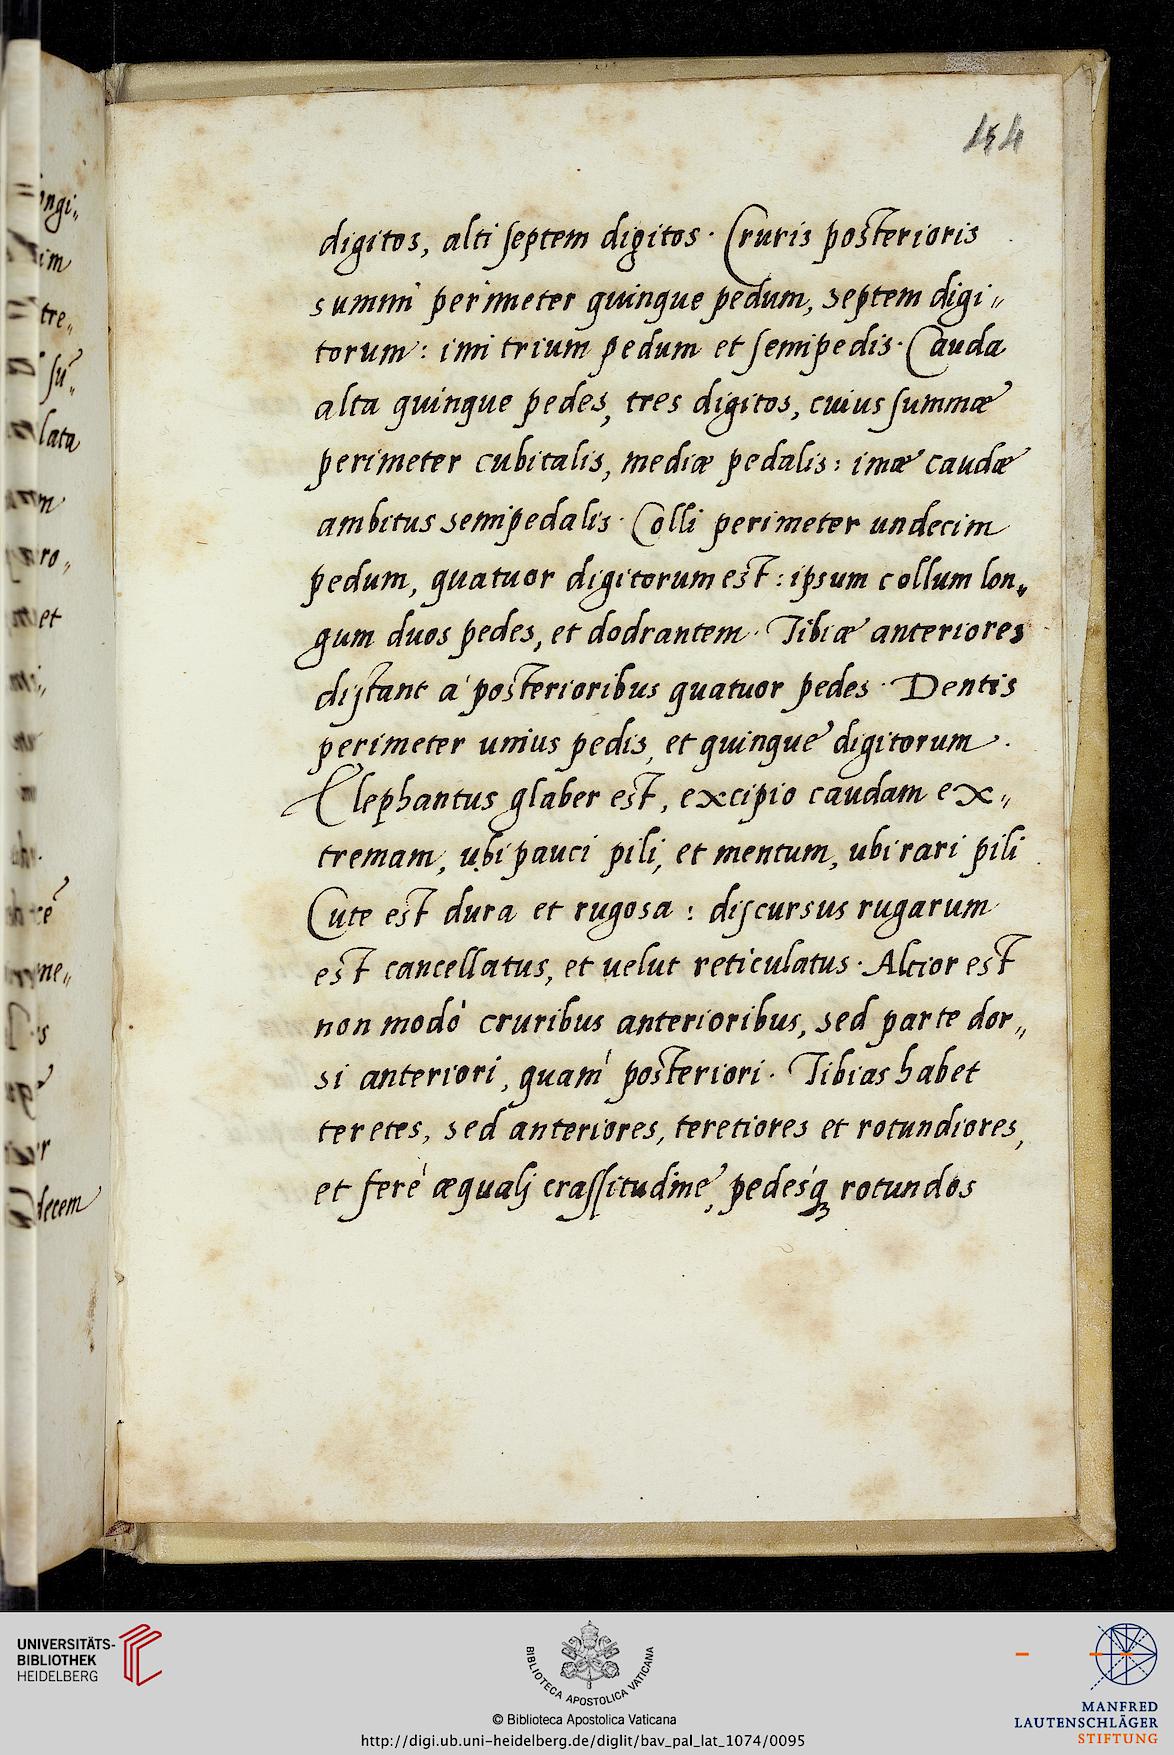 154
digitos, alti septem digitos. Cruris posterioris
summi perimeter quinque pedum, septem digi„
torum: imi trium pedum et semipedis. Cauda
alta quinque pedes, tres digitos, cuius summæ
perimeter cubitalis, mediæ pedalis: imæ caudæ
ambitus semipedalis. Colli perimeter undecim
pedum, quatuor digitorum est: ipsum collum lon„
gum duos pedes, et dodrantem. Tibiæ anteriores
distant à posterioribus quatuor pedes. Dentis
perimeter unius pedis, et quinque digitorum.
Elephantus glaber est, excipio caudam ex„
tremam, ubi pauci pili, et mentum, ubi rari pili.
Cute est dura et rugosa: discursus rugarum
est cancellatus, et uelut reticulatus. Altior est
non modò cruribus anterioribus, sed parte dor„
si anteriori, quam̀ posteriori. Tibias habet
teretes, sed anteriores, teretiores et rotundiores,
et ferè æquali crassitudine, pedesq́ꝫ rotundos
ongi„
im
tre„
lata
ro„
et
ne„
decem
UNIVERSITÄTS-
BIBLIOTHEK
HEIDELBERG
BIBLIOTECA APOSTOLICA VATICANA
© Biblioteca Apostolica Vaticana
http://digi.ub.uni-heidelberg.de/diglit/bav_pal_lat_1074/0095
MANFRED
LAUTENSCHLÄGER
STIFTUNG